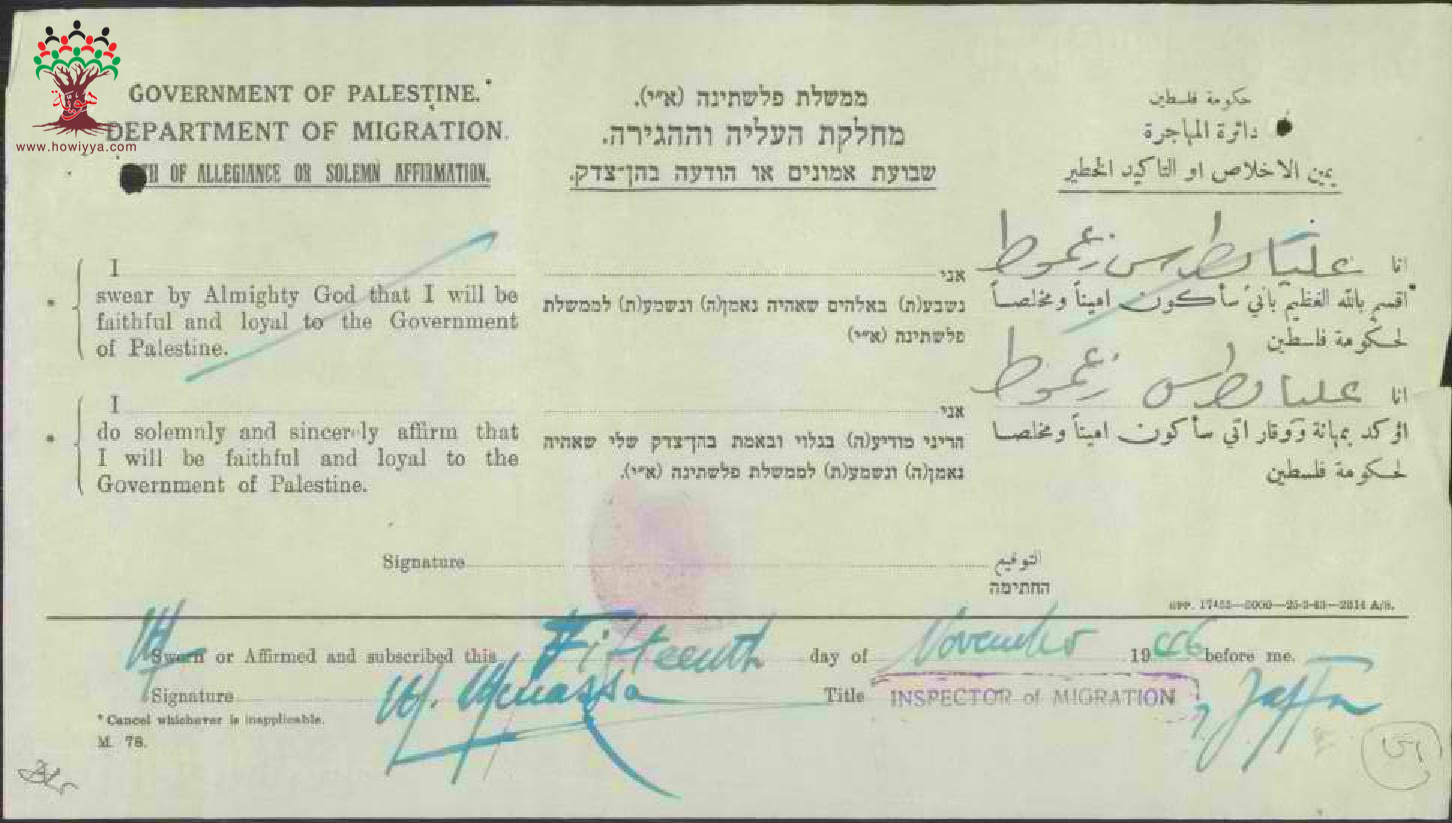 هوية
www.howiyya.com
GOVERNMENT OF PALESTINE.
DEPARTMENT OF MIGRATION.
TH OF ALLEGIANCE OR SOLEMN AFFIRMATION.
ממשלת פלשתינה (א״י).
מחלקת העליה וההגירה.
שבועת אמונים או הודעה בהן־צדק.
حكومة فلسطين
دائرة المهاجرة
يمين الاخلاص او التاكيد الخطير
* I
swear by Almighty God that I will be
faithful and loyal to the Government
of Palestine.
אני
נשבע(ת) באלהים שאהיה נאמן(ה) ונשמע(ת) לממשלת
פלשתינה (א״י)
انا عليا بطرس زعموط
*اقسم بالله العظيم بأني سأكون اميناً ومخلصاً
لحكومة فلسطين
* I
do solemnly and sincerely affirm that
I will be faithful and loyal to the
Government of Palestine.
אני
הריני מודיע(ה) בגלוי ובאמת בהן־צדק שלי שאהיה
נאמן(ה) ונשמע(ת) לממשלת פלשתינה (א״י).
انا عليا بطرس زعموط
اؤكد بمهانة ووقار اني سأكون اميناً ومخلصا
لحكومة فلسطين
Signature
التوقيع
החתימה
GPP. 17455—5000—25-3-43—2814 A/S.
Sworn or Affirmed and subscribed this Fifteenth day of November 1946 before me.
Signature Title INSPECTOR of MIGRATION Jaffa
* Cancel whichever is inapplicable.
M. 78.